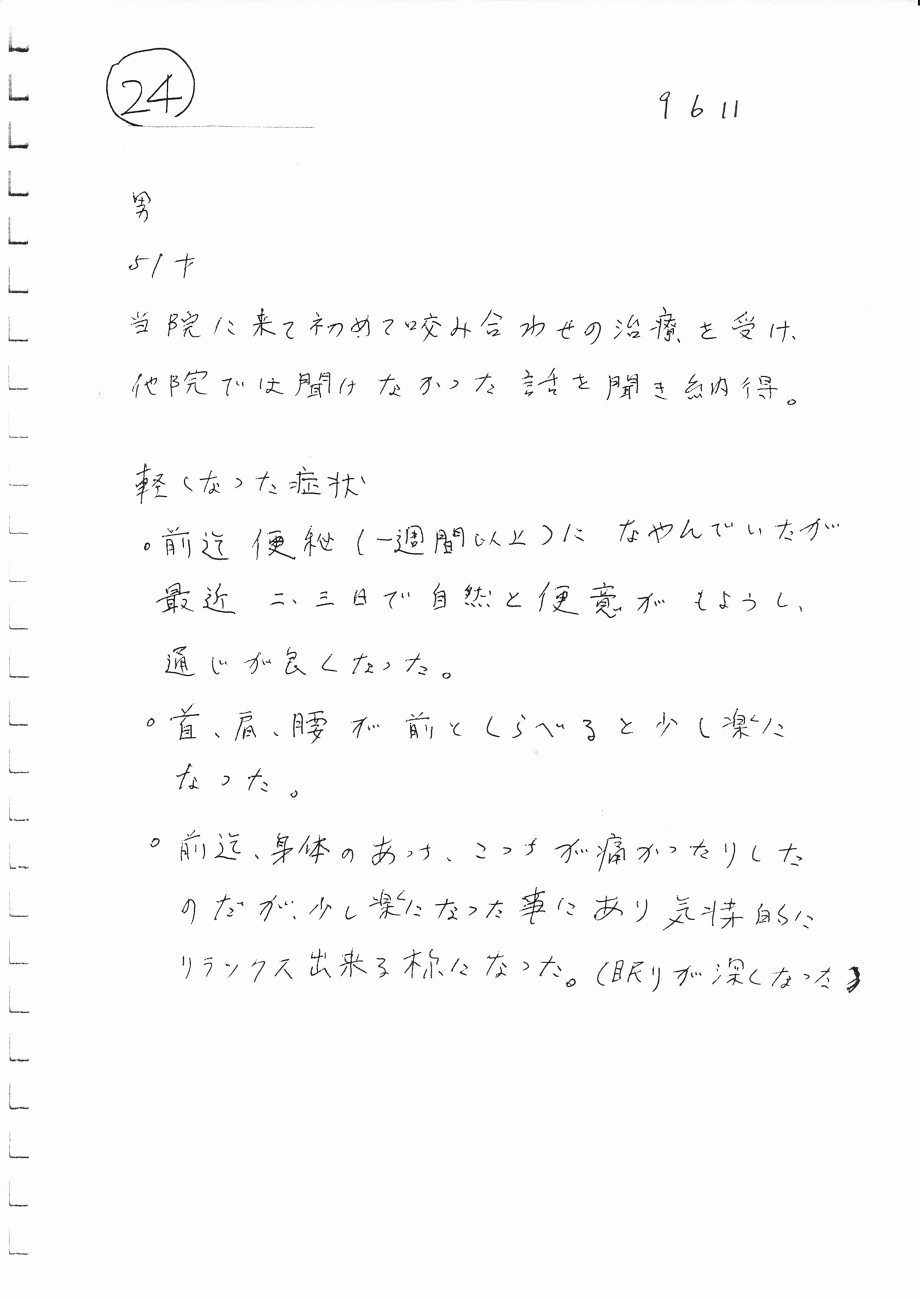 24
9 6 11
男
51才
当院に来て初めて咬み合わせの治療を受け、
他院では聞けなかった話を聞き納得。
軽くなった症状
○前迄便秘(一週間以上)になやんでいたが
最近二、三日で自然と便意がもようし、
通じが良くなった。
○首、肩、腰が前としらべると少し楽に
なった。
○前迄、身体のあっち、こっちが痛かったりした
のだが、少し楽になった事にあり気持的に
リラックス出来る様になった。(眠りが深くなった)